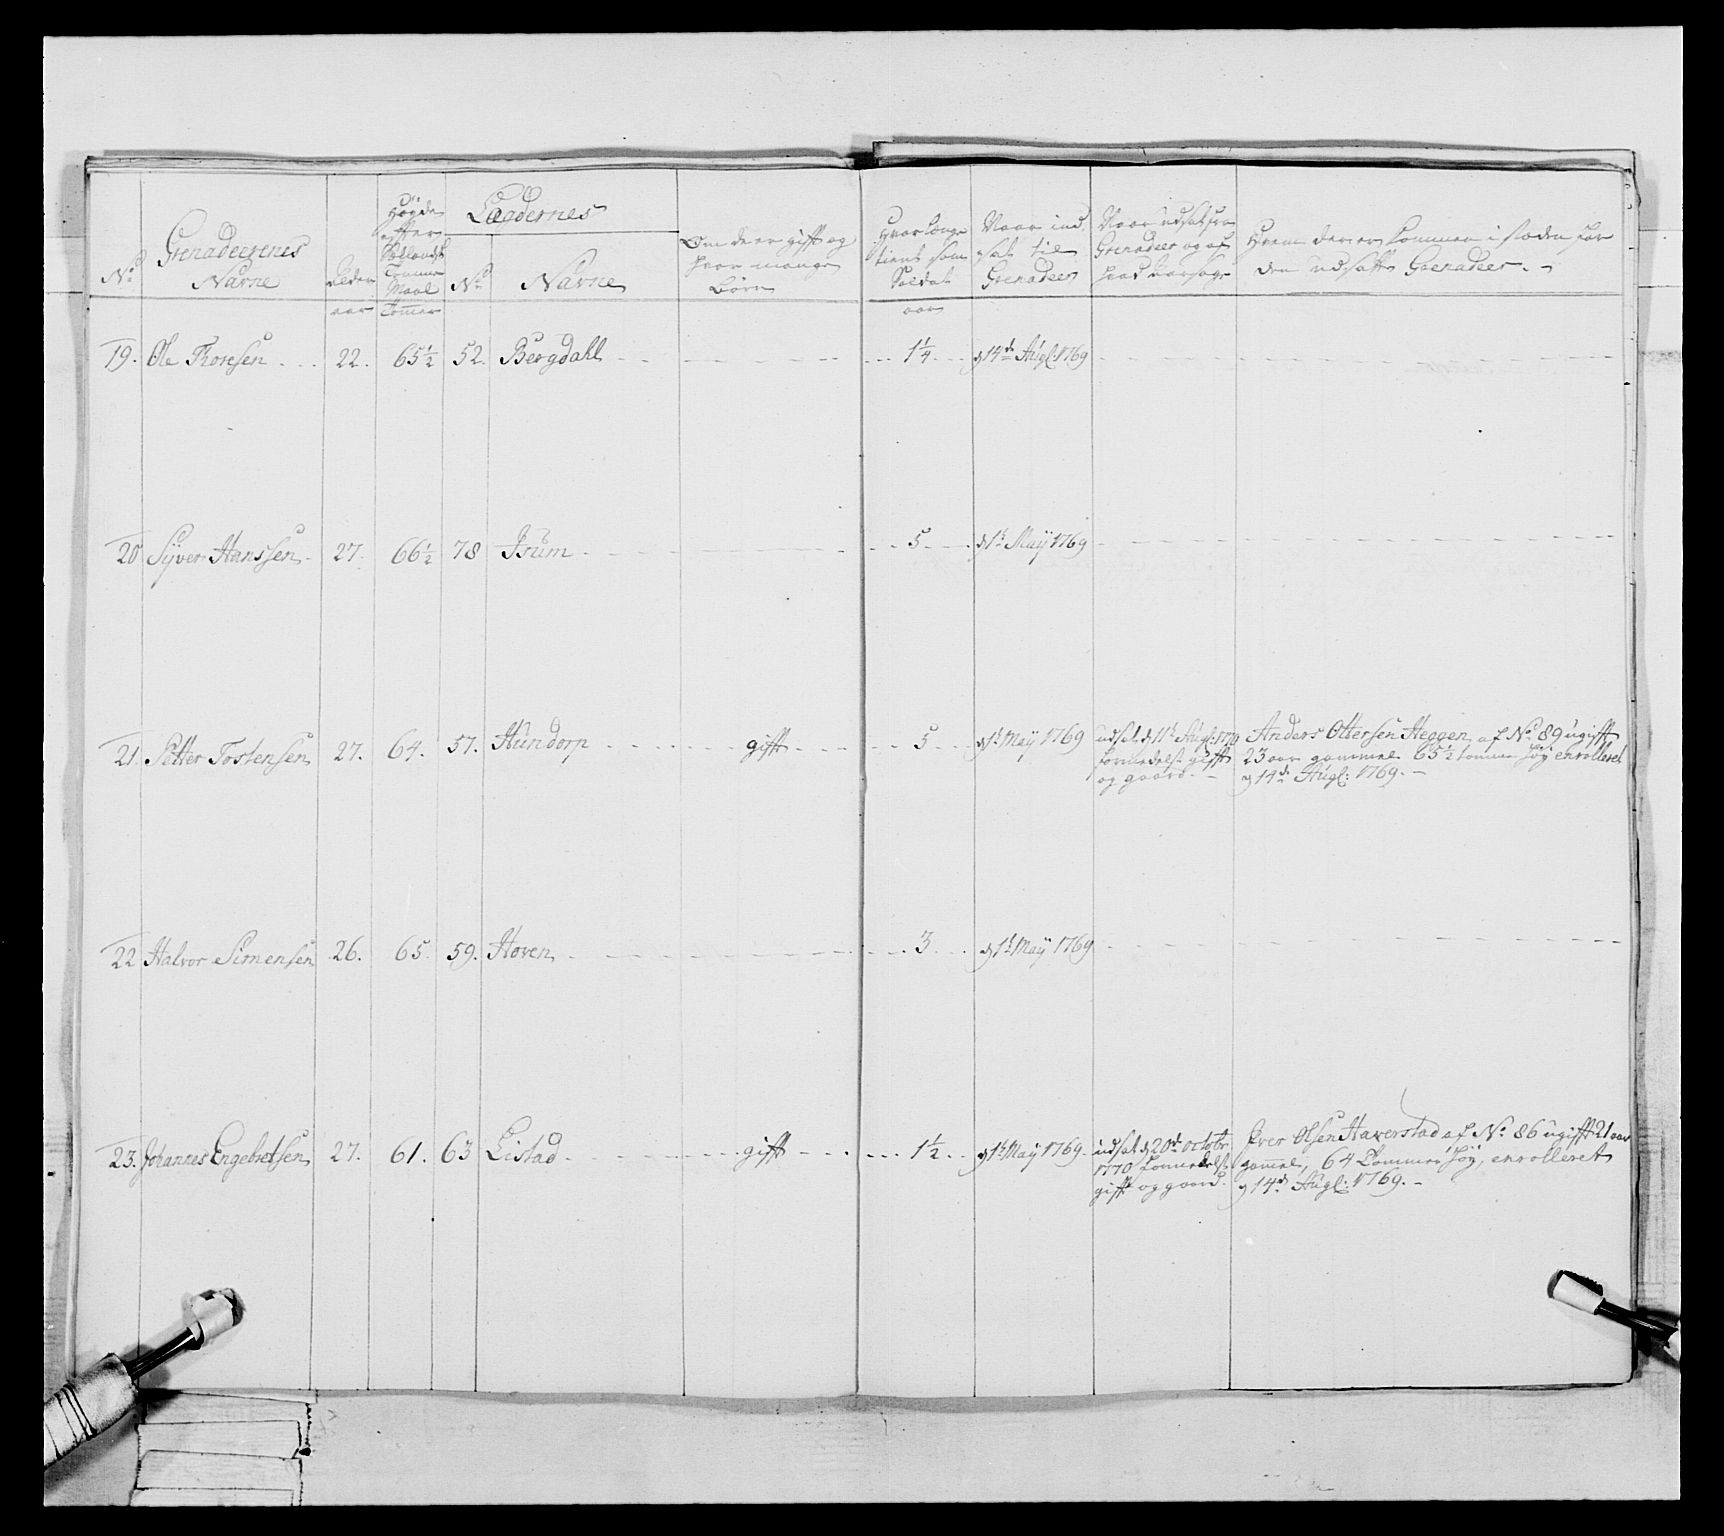 No
Grenadeerenes
Nafne
Alder
aar
Høyde
efter
Sællandsk
Tomme
Maal
Tommer
Lægdernes
No
Nafne
Om de er gift og
hvor mange
børn
Hvor længe
tient som
Soldat
aar
Naar ind
sat til
Grenadeer
Naar udsat fra
Grenadeer og af
hvad aarsage
Hvem der er kommen i stæden for
den udsatte Grenadeer. -
19. Ole Thoresen 22. 65½ 52. Bergdahl 1¼ d 14de Augl: 1769
20 Syver Hanssen 27. 66½ 78 Isum 5 d 1t May 1769
21. Petter Tostensen 27. 64. 57. Hundorp gift 5 d 1t May 1769
udsat d 11t Augl: 1770
formedelst gift
og gaard. -
Anders Ottersen Heggen, af No 89 ugift
23 aar gammel 65½ tommer høy enrolleret
d 14de Augl: 1769. -
22 Halvor Simensen 26. 65. 59. Hoven 3 d 1t May 1769
23. Johannes Engebretsen 27. 61. 63 Listad gift 1½ d 1t May 1769.
udsat d 20de octobr
1770 formedelst
gift og gaard.
Iver Olsen Haverstad af No 86 ugift 21 aar
gammel, 64 Tommer høy, enrolleret
d 14de Augl: 1769. -